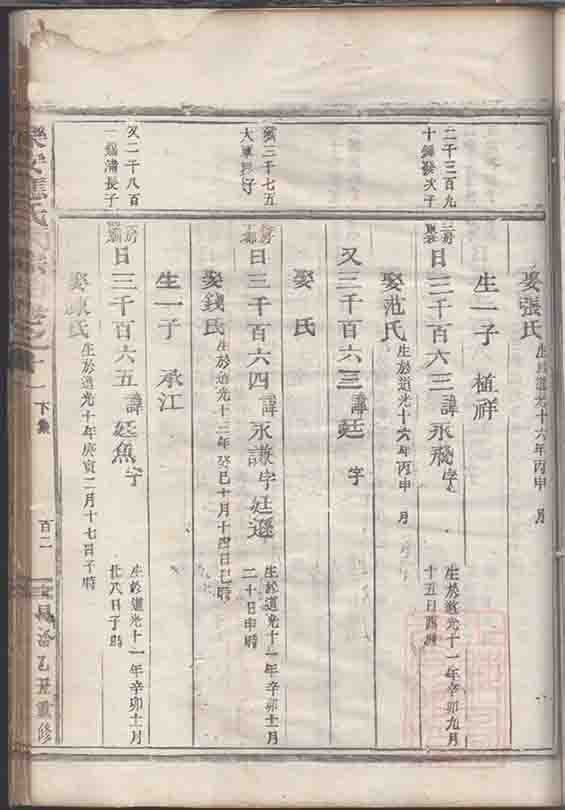 娶張氏 生於道光十六年丙申 月
生一子 植祥
二千三百九
十 發次子
日三千百六三諱永飛字 生於道光十一年辛卯九月
十五日酉時
娶范氏 生於道光十六年丙申 月
又三千百六三諱廷 字
娶 氏
三千七五
日三千百六四諱永謙字廷遜 生於道光十一年辛卯十一月
二十日申時
娶錢氏 生於道光十三年癸巳十月十四日巳時
生一子 承江
又二千八百
一 清長子
日三千百六五諱廷魚字 生於道光十一年辛卯十一月
廿八日子時
娶 氏 生於道光十年庚寅二月十七日子時
下集 百二 同治乙丑重修